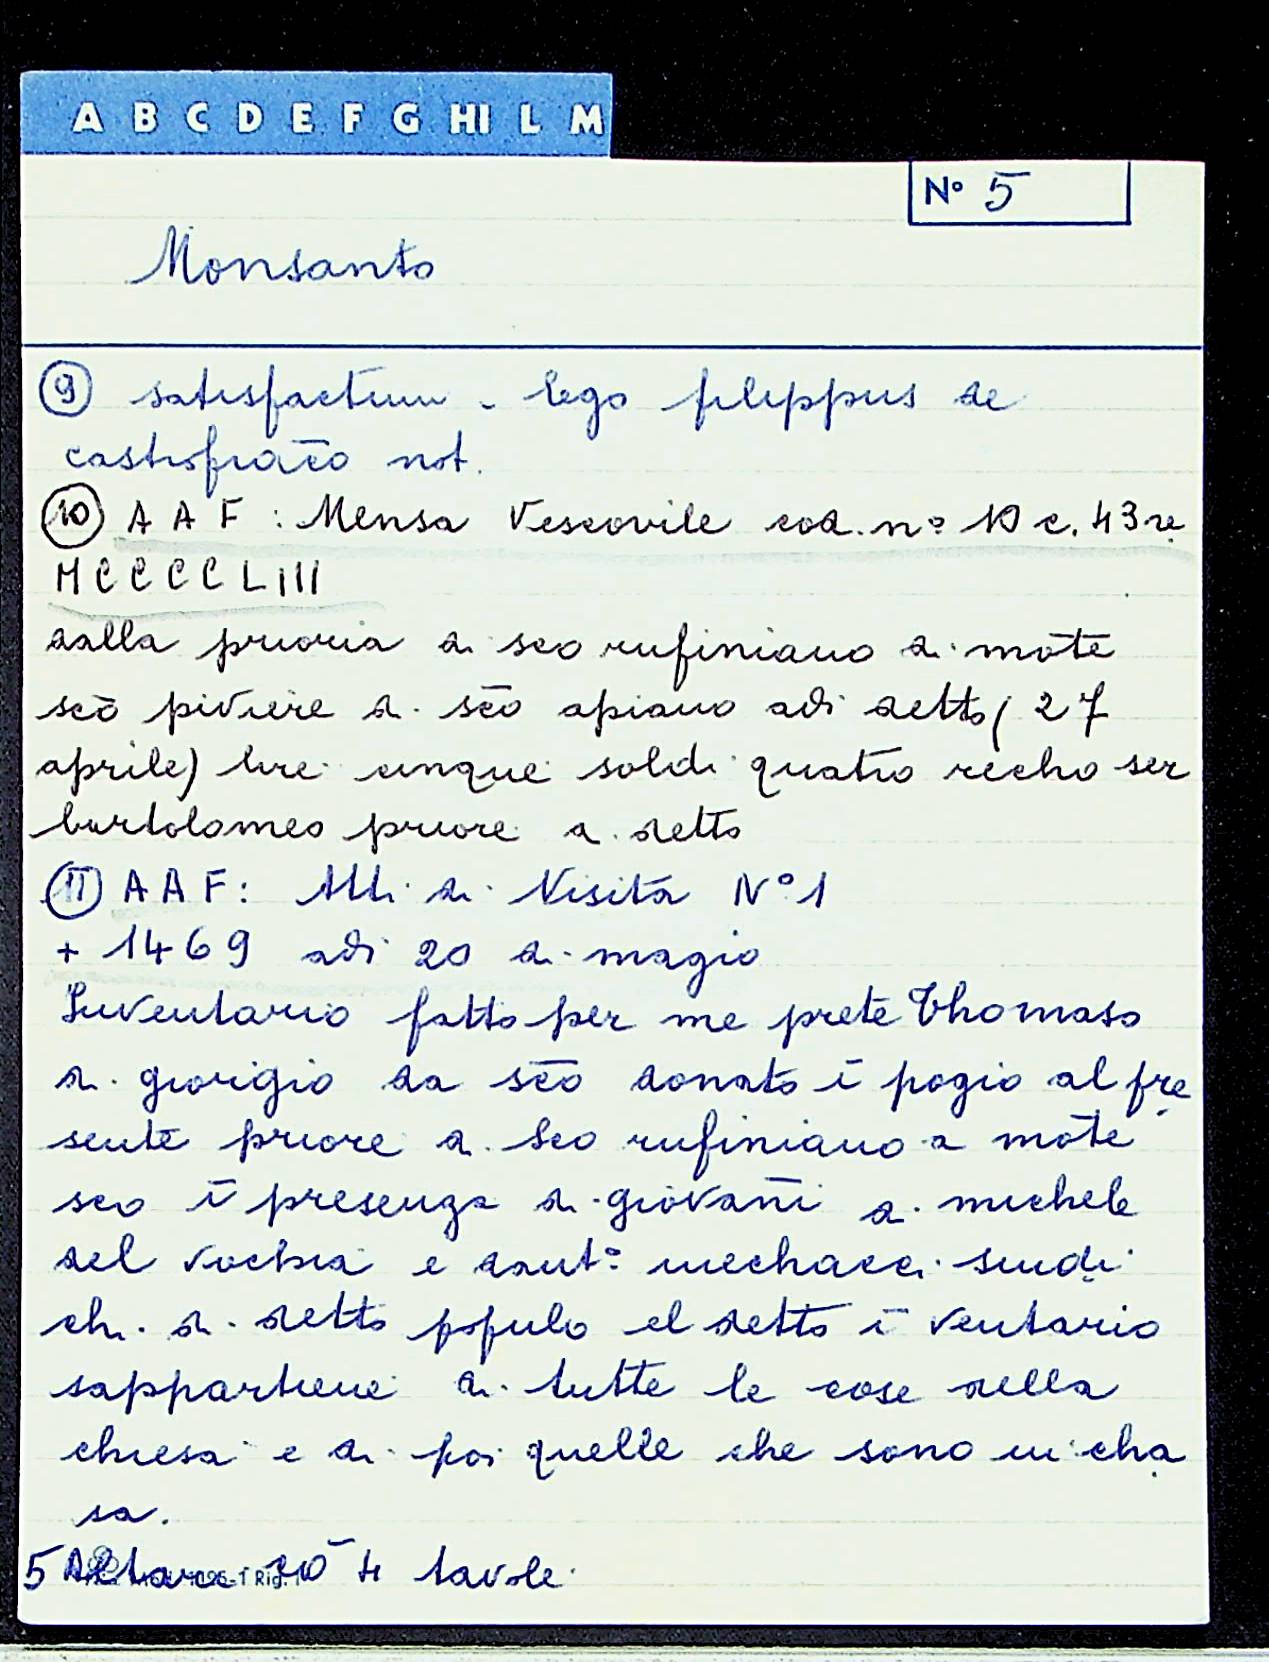 A B C D E F G HI L M
N° 5
Monsanto
⑨ satisfactum - lego filippus de
not.
⑩ A A F : Mensa Vescovile cod. n° 10 c. 43 re
MCCCCLIII
dalla prioria di sco rufiniano di mōte
scō piviere di scō apiano adi detto (27
aprile) lire cinque soldi quatro recho ser
bartolomeo priore di detto
⑪ A A F : Atti di Visita N° 1
+ 1469 adi 20 di magio
Inventario fatto per me prete Thomaso
di giorigio da scō donato ī pogio al pre
sente priore di sco rufiniano a mōte
sco ī presenza di giovañi di michele
del e mechacci sindi
chi di detto popolo el detto ī ventario
sappartiene di tutte le cose della
chiesa e di poi quelle che sono in cha
sa.
5 Altare 4 tavole